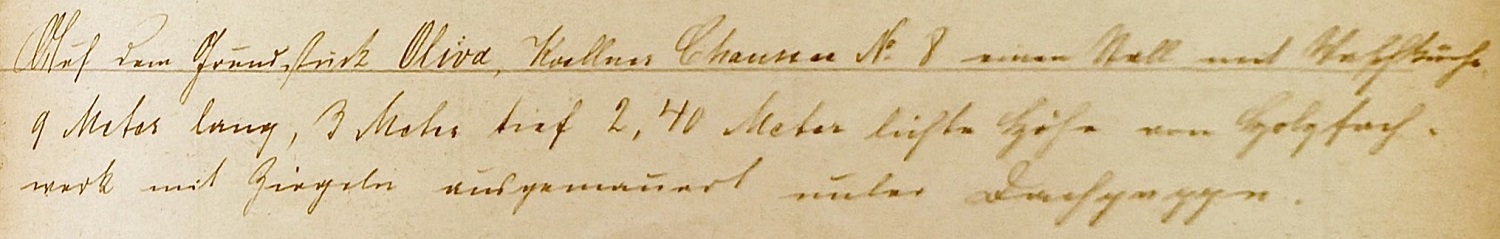 Auf dem Grundstück Oliva, Koellner Chaussee No. 8 einen Stall mit Waschküche
9 Meter lang, 3 Meter tief 2,40 Meter lichte Höhe von Holzfach-
werk mit Ziegeln ausgemauert unter Dachpappe.